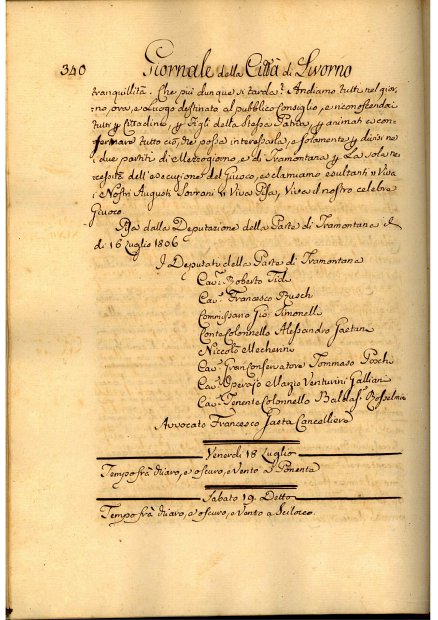 340 Giornale della Città di Livorno
tranquillità. Che più dunque si tarda? Andiamo tutti nel gior-
no, ora, e Luogo destinato al pubblico Consiglio, e riconoscendoci
tutti Cittadini, Figli della Stessa Patria, animati
tutto ciò, che possa interessarla, e solamente divisi ne
i due partiti di Mezzogiorno, e di Tramontana La sola ne-
cessità dell'esecuzione del Giuoco, esclamiamo esultanti Viva
i Nostri Augusti Sovrani Viva Pisa, Viva il nostro celebre
Giuoco
Pisa dalla Deputazione della Parte di Tramontana
di 16 Luglio 1806
I Deputati della Parte di Tramontana
Cav. Roberto
Cav. Francesco Rusch
Commissario Gio. Simonelli
Conte Colonnello Alessandro Gaetani
Niccolò Mecherini
Cav. Gran Conservatore Tommaso Poschi
Cav. Operajo Marzio Venturini Galliani
Cav. Tenente Colonnello Baldas. Rosselmini
Avvocato Francesco Gaeta Cancelliere
Venerdi 18 Luglio
Tempo frà chiaro, e oscuro, e Vento a Ponente
Sabato 19. Detto
Tempo frà chiaro, e oscuro, e Vento a Scilocco.